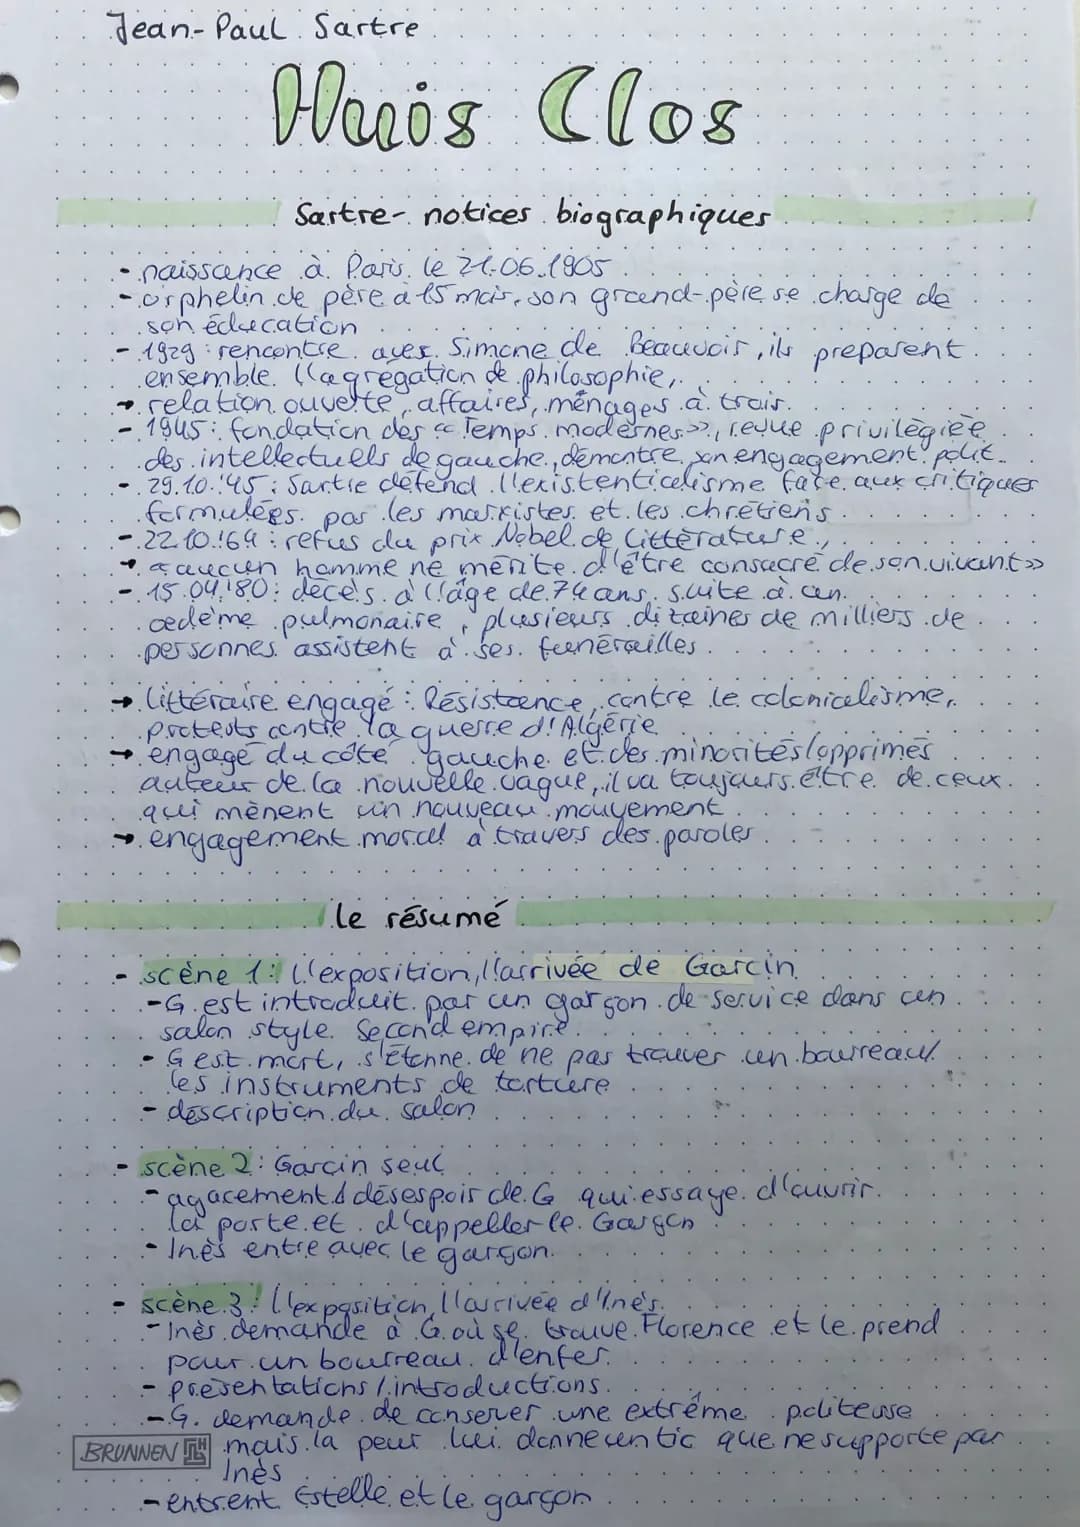 Jean-Paul Sartre
Huis Clos
Sartre- notices biographiques
- naissance à Paris le 21.06.1905
- orphelin de père à 15 mois, son grand-père se charge de
son éducation
- 1929 : rencontre avec Simone de Beauvoir, ils preparent
ensemble l'agrégation de philosophie,
→ relation ouverte, affaires, ménages à trois.
- 1945 : fondation des « Temps modernes », revue privilègiée
des intellectuels de gauche, démontre son engagement polit.
- 29.10.'45 : Sartre défend l'existentialisme face aux critiques
formulées par les marxistes et les chrétiens
- 22.10.'64 : refus du prix Nobel de littérature,
→ « aucun homme ne mérite d'être consacré de son vivant »
- 15.04.'80 : décès à l'âge de 74 ans suite à un
oedème pulmonaire, plusieurs dizaines de milliers de
personnes assistent à ses funérailles
→ littéraire engagé : Résistance, contre le colonialisme,
protests contre la guerre d'Algérie
→ engagé du côté gauche et des minorités/opprimés
auteur de la nouvelle vague, il va toujours être de ceux
qui mènent un nouveau mouvement
→ engagement moral à travers des paroles
le résumé
- scène 1 : l'exposition, l'arrivée de Garcin
- G. est introduit par un garçon de service dans un
salon style Second empire.
- G est mort, s'étonne de ne pas trouver un bourreau/
les instruments de torture
- description du salon
- scène 2 : Garcin seul
- agacement & désespoir de G qui essaye d'ouvrir
la porte et d'appeller le Garçon
- Inès entre avec le garçon.
- scène 3 : l'exposition, l'arrivée d'Inès
- Inès demande à G. où se trouve Florence et le prend
pour un bourreau d'enfer.
- présentations / introductions.
- G. demande de conserver une extrême politesse
BRUNNEN mais la peur lui donne un tic que ne supporte pas
Inès
- entrent Estelle et le garçon